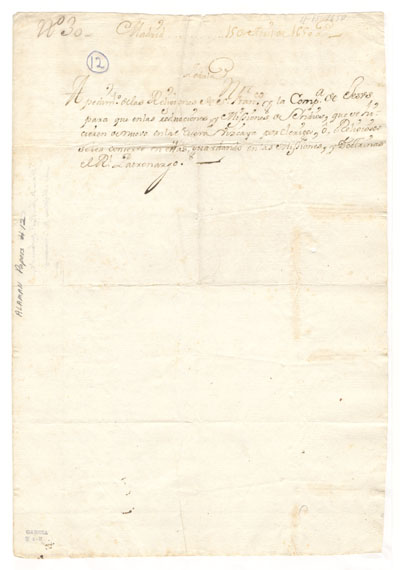 Nº 30
Madrid
15 de
12
A pedimto. de las Religiones de Sn. Franco. y la Compa. de Jesus
para que en las reduciones y Misiones de Yndios, que se hi-
cieren de nuevo en la Nueva Vizcaya por Clerigos, o Religiosos
se les conserve en ellas, guardando en las Misiones, y Doctrinas
el Rl. Patronazgo.
ALAMAN Papers #12
GARCIA